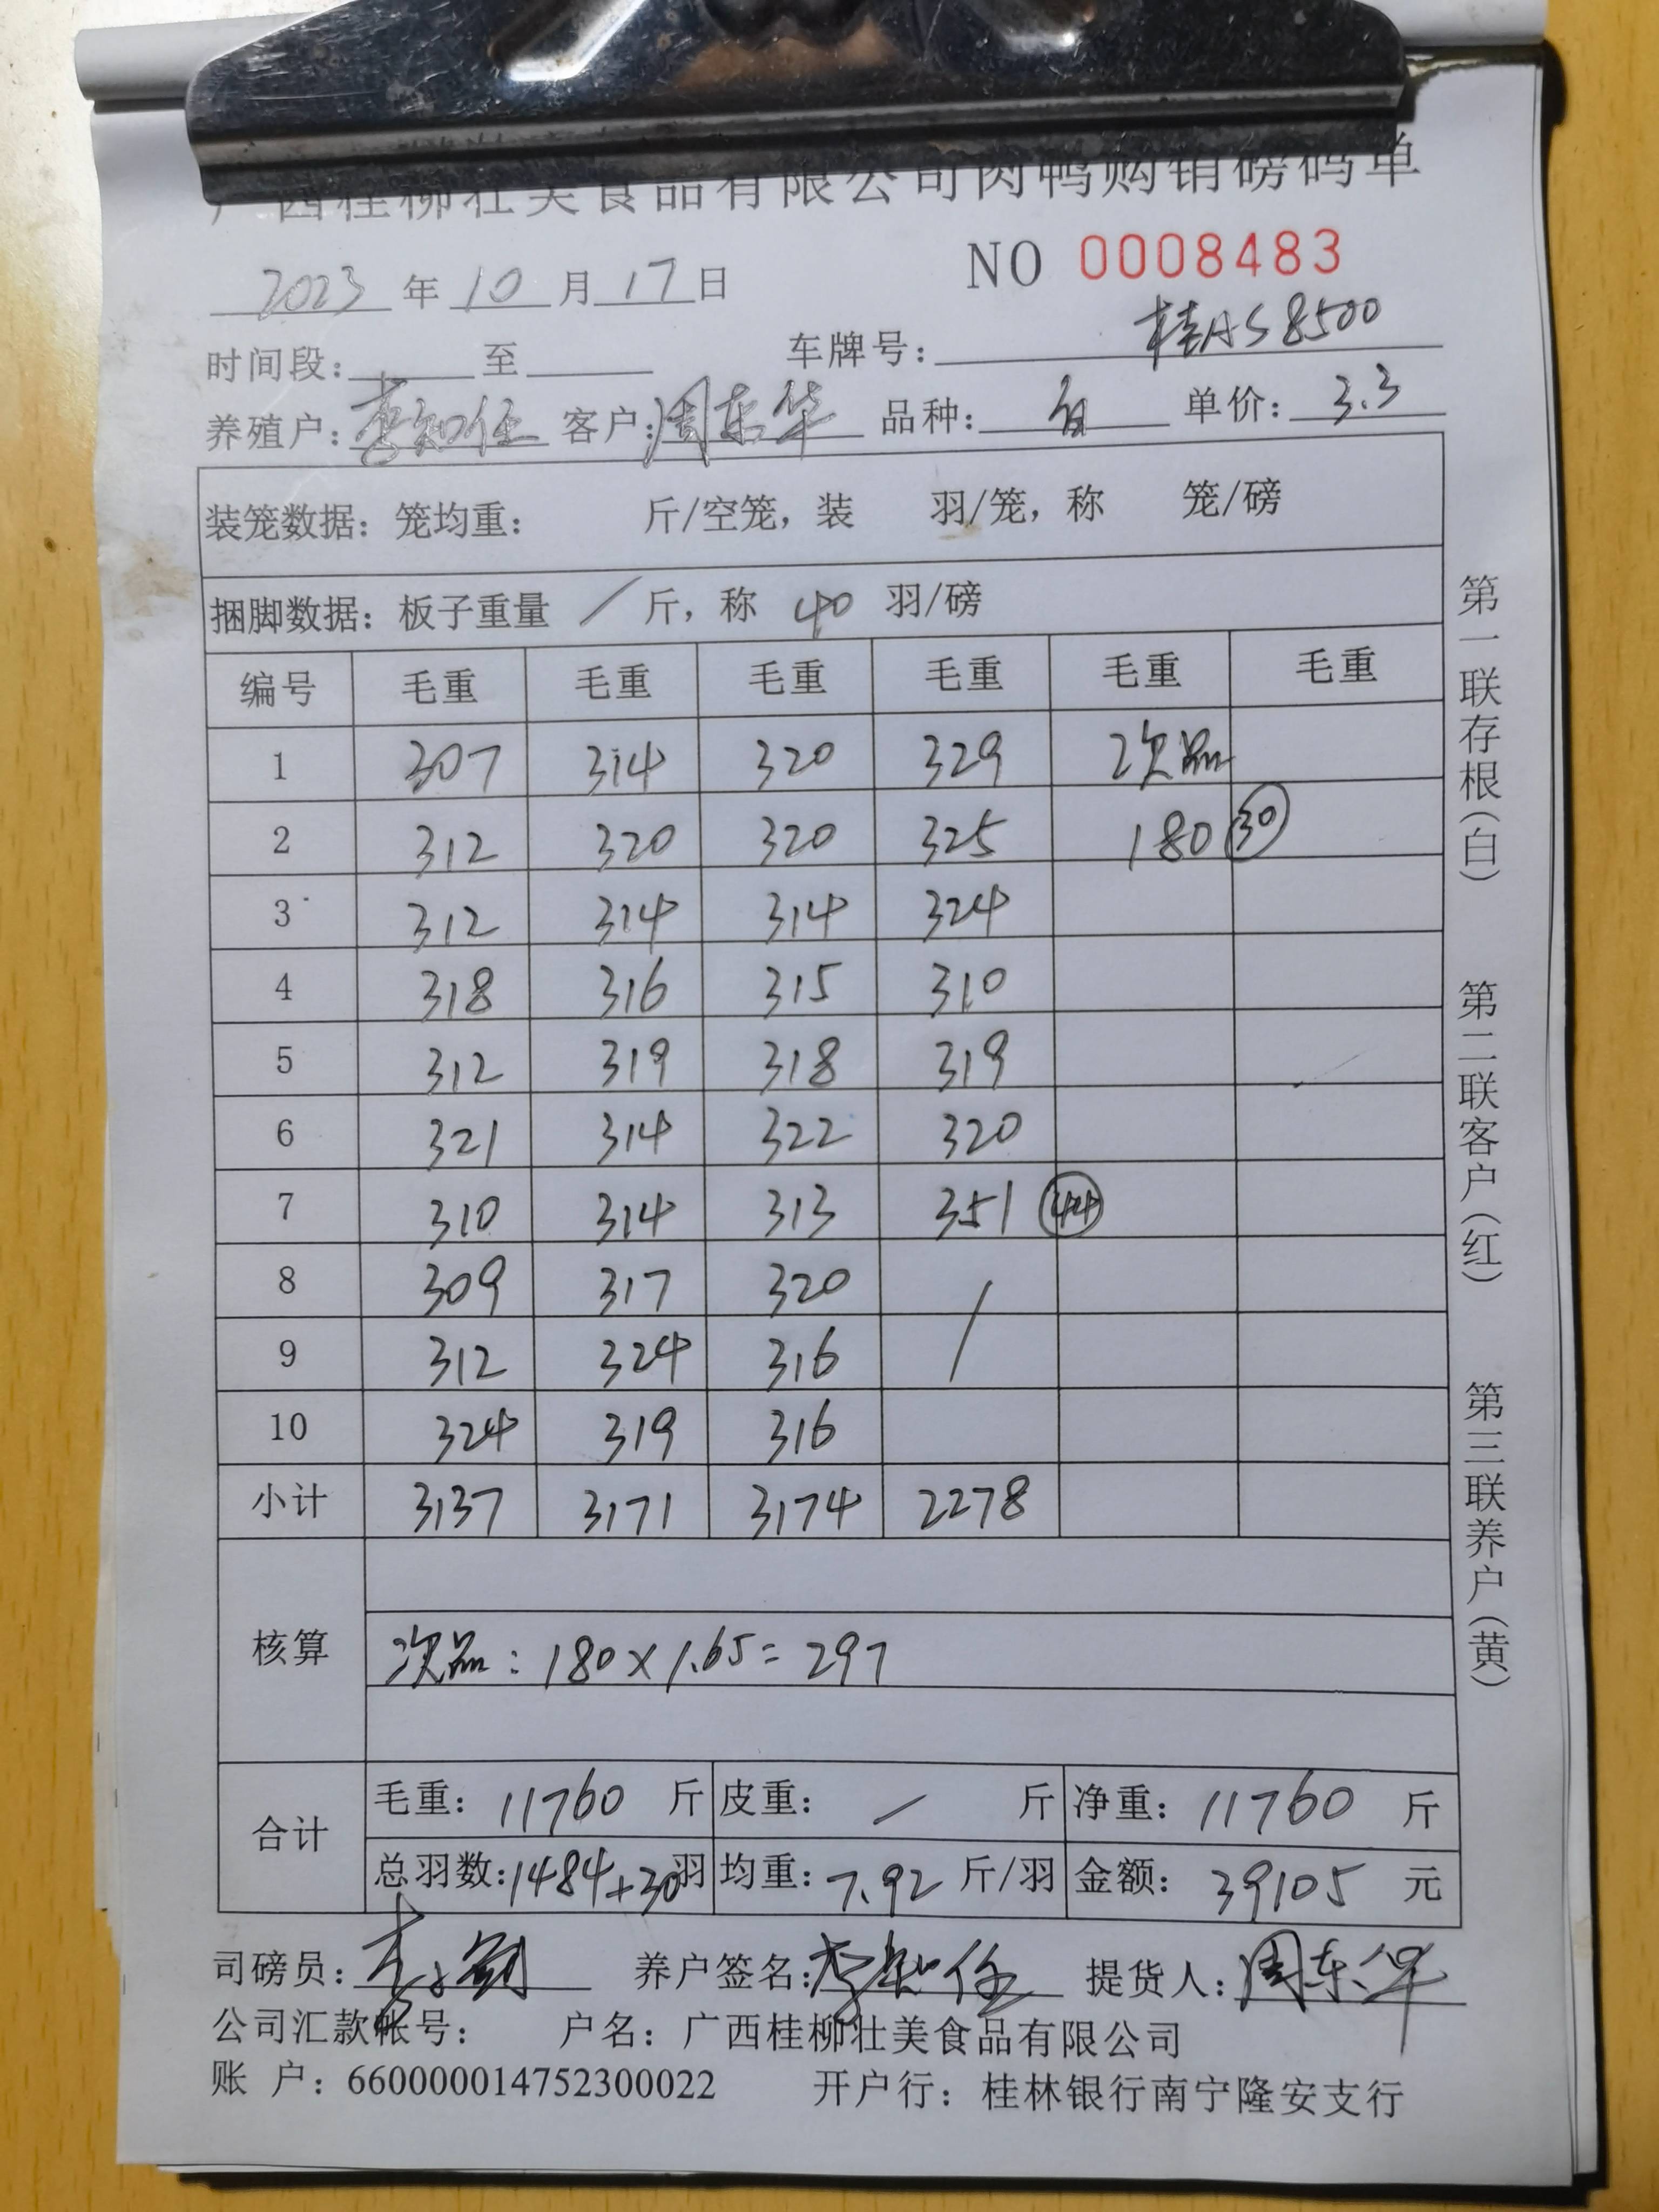 广西桂柳壮美食品有限公司肉鸭购销磅码单
NO 0008483
2023 年 10 月 17 日
时间段: 至 车牌号: 桂AS8500
养殖户: 李知任 客户: 周东华 品种: 白 单价: 3.3
装笼数据: 笼均重: 斤/空笼, 装 羽/笼, 称 笼/磅
捆脚数据: 板子重量 / 斤, 称 40 羽/磅
编号 毛重 毛重 毛重 毛重 毛重 毛重
1 307 314 320 329 次品
2 312 320 320 325 180 30
3 312 314 314 324
4 318 316 315 310
5 312 319 318 319
6 321 314 322 320
7 310 314 313 351 44
8 309 317 320 /
9 312 324 316
10 324 319 316
小计 3137 3171 3174 2278
核算
次品: 180×1.65=297
合计
毛重: 11760 斤 皮重: / 斤 净重: 11760 斤
总羽数: 1484+30羽 均重: 7.92 斤/羽 金额: 39105 元
司磅员: 养户签名: 李知任 提货人: 周东华
公司汇款帐号: 户名: 广西桂柳壮美食品有限公司
账 户: 660000014752300022 开户行: 桂林银行南宁隆安支行
第一联存根(白)
第二联客户(红)
第三联养户(黄)